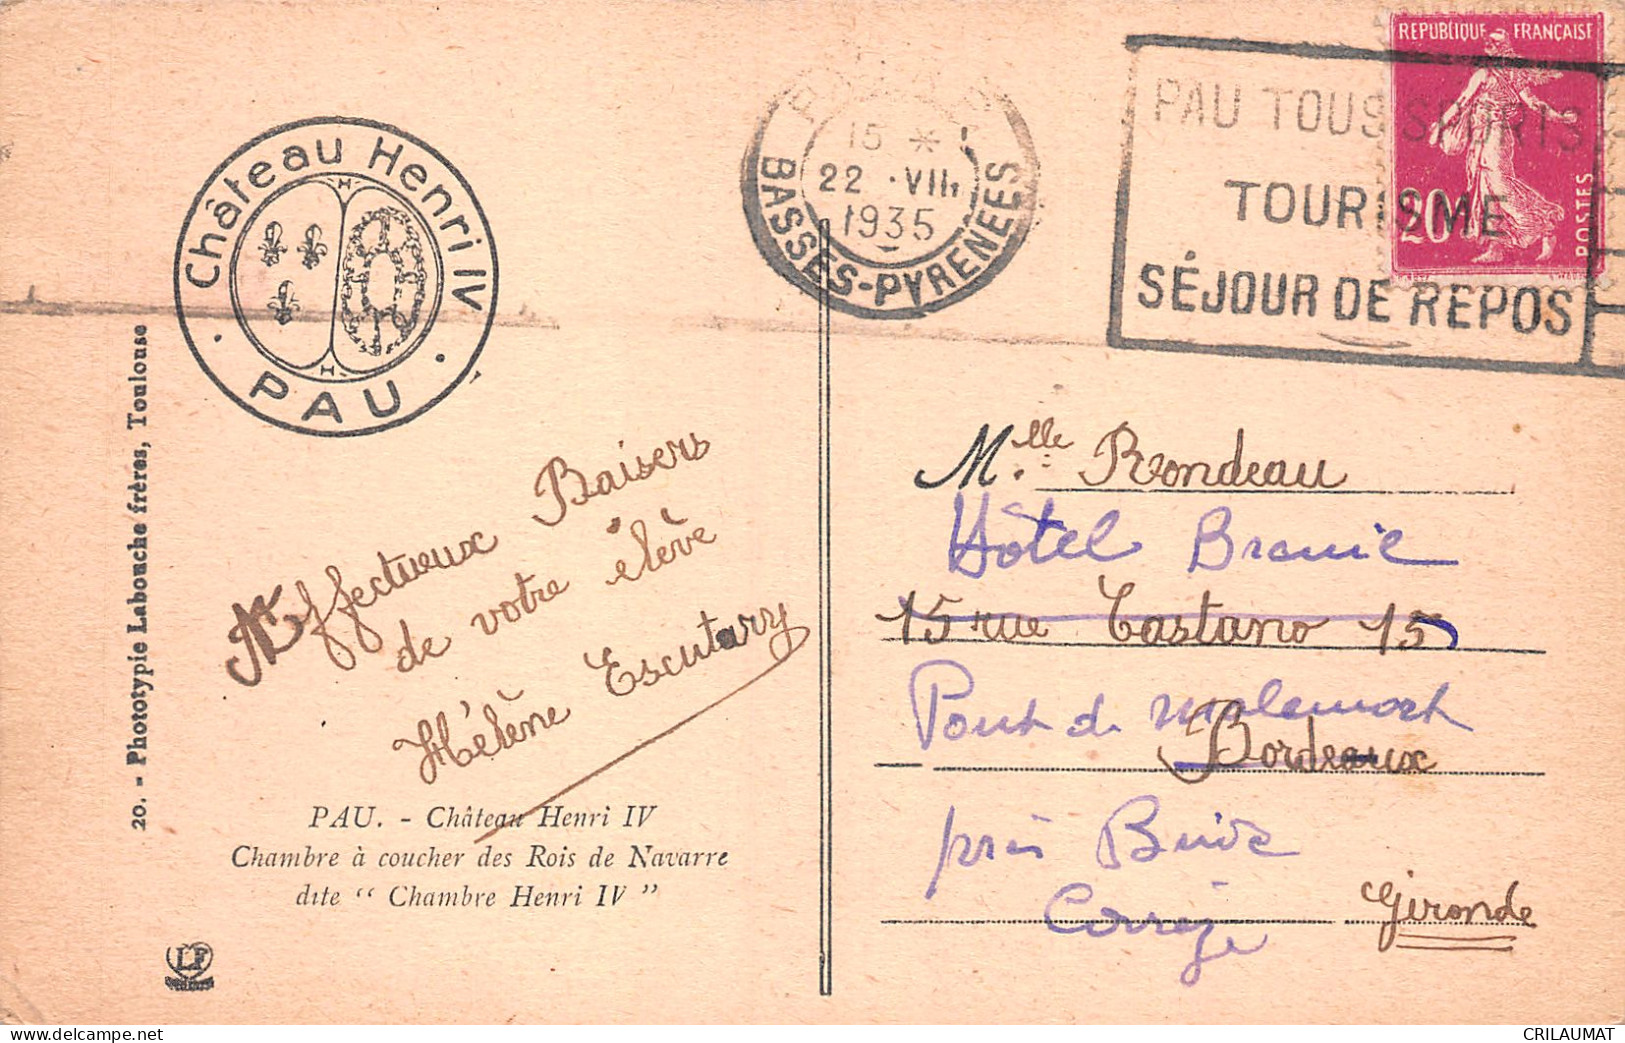 REPUBLIQUE FRANÇAISE
20
POSTES
15 *
22 · VII.
1935
BASSES-PYRENEES
PAU TOUS SPORTS
TOURISME
SÉJOUR DE REPOS
Château Henri IV
· PAU ·
H
H
20. - Phototypie Labouche frères, Toulouse
Affectueux Baisers
de votre élève
Hélène Escutary
PAU. - Château Henri IV
Chambre à coucher des Rois de Navarre
dite “ Chambre Henri IV ”
LF
Mlle Rondeau
Hôtel
15 rue Castano 15
Pont de Malemort
Bordeaux
près Brive
Corrèze
Gironde
delcampe.net
CRILAUMAT